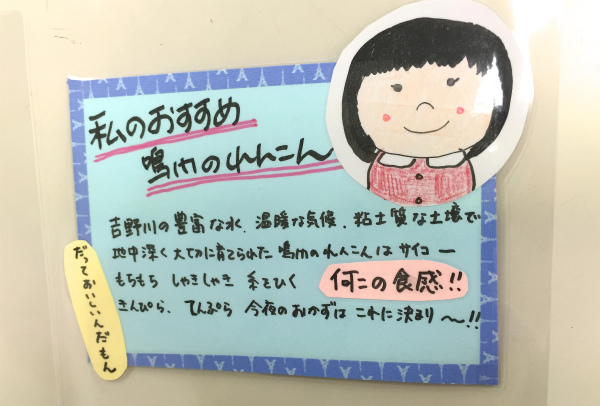 私のおすすめ
鳴門のれんこん
吉野川の豊富な水、温暖な気候、粘土質な土壌で
地中深く大切に育てられた 鳴門のれんこんはサイコー
もちもち しゃきしゃき 糸をひく 何この食感!!
きんぴら、てんぷら 今夜のおかずは これに決まり〜!!
だっておいしいんだもん